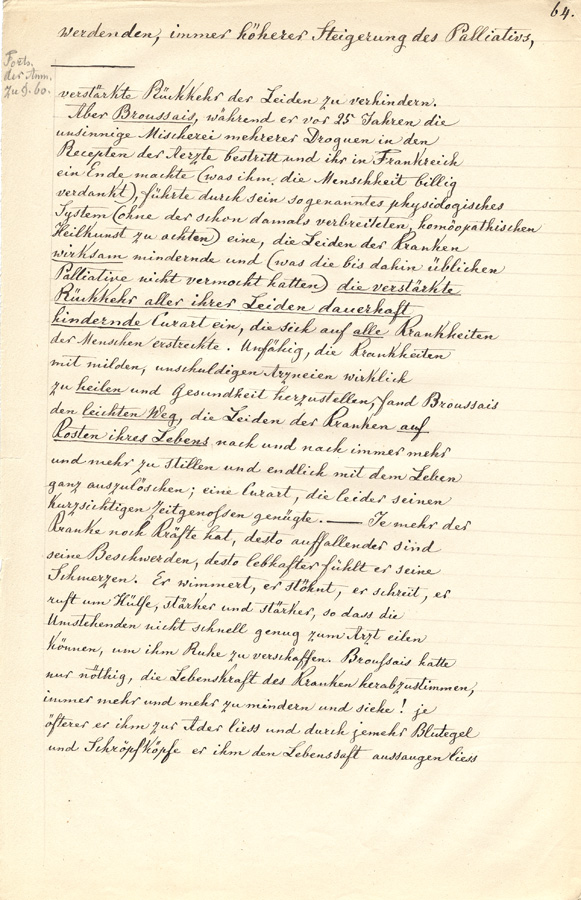 64.
werdenden, immer höherer Steigerung des Palliativs,
Forts.
der Anm.
zu §. 60.
verstärkte Rückkehr der Leiden zu verhindern.
Aber Broussais, während er vor 25 Jahren die
unsinnige Mischerei mehrerer Droguen in den
Recepten der Aerzte bestritt und ihr in Frankreich
ein Ende machte (was ihm die Menschheit billig
verdankt), führte durch sein sogenanntes physiologisches
System (ohne der schon damals verbreiteten, homöopathischen
Heilkunst zu achten) eine, die Leiden der Kranken
wirksam mindernde und (was die bis dahin üblichen
Palliative nicht vermocht hatten) die verstärkte
Rückkehr aller ihrer Leiden dauerhaft
hindernde Curart ein, die sich auf alle Krankheiten
der Menschen erstreckte. Unfähig, die Krankheiten
mit milden, unschuldigen Arzneien wirklich
zu heilen und Gesundheit herzustellen, fand Broussais
den leichten Weg, die Leiden der Kranken auf
Kosten ihres Lebens nach und nach immer mehr
und mehr zu stillen und endlich mit dem Leben
ganz auszulöschen; eine Curart, die leider seinen
kurzsichtigen Zeitgenossen genügte. — Je mehr der
Kranke noch Kräfte hat, desto auffallender sind
seine Beschwerden, desto lebhafter fühlt er seine
Schmerzen. Er wimmert, er stöhnt, er schreit, er
ruft um Hülfe, stärker und stärker, so dass die
Umstehenden nicht schnell genug zum Arzt eilen
können, um ihm Ruhe zu verschaffen. Broussais hatte
nur nöthig, die Lebenskraft des Kranken herabzustimmen,
immer mehr und mehr zu mindern und siehe! je
öfterer er ihm zur Ader liess und durch jemehr Blutegel
und Schröpfköpfe er ihm den Lebenssaft aussaugen liess